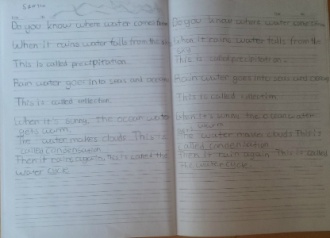 Do you know where water comes from
When it rains water falls from the sky
This is called precipitation.
Rain water goes into seas and oceans
This is called collection.
When it's sunny the ocean water
gets warm.
The water makes clouds. This is
called Condensation
Then it rains again. this is called the
Water cycle.
Do you know where water comes from
When it rains water falls from the
sky
This is called precipitation.
Rain water goes into seas and oceans
This is called collection
When it's sunny the ocean water
gets warm
The water makes clouds This is
called condensation
Then it rains again This is called
the water cycle